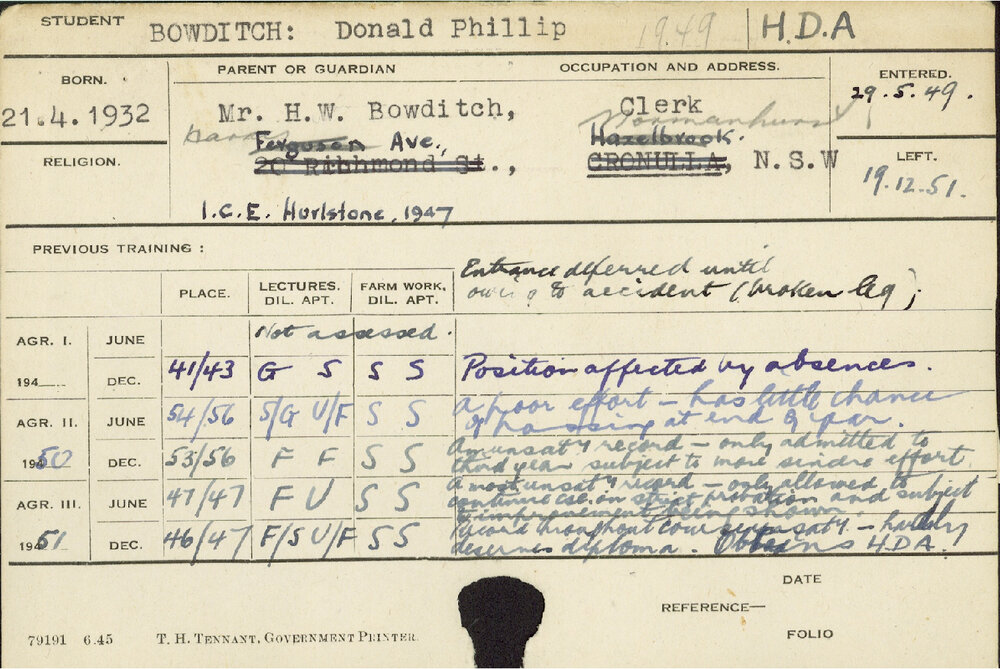 STUDENT BOWDITCH: Donald Phillip 1949 H.D.A
BORN. PARENT OR GUARDIAN OCCUPATION AND ADDRESS. ENTERED.
21.4.1932 Mr. H.W. Bowditch, Clerk 29.5.49.
Normanhurst
Ferguson Ave., Hazelbrook.
20 Richmond St., CRONULLA, N.S.W
RELIGION. LEFT.
19.12.51.
I.C.E. Hurlstone, 1947
PREVIOUS TRAINING :
Entrance deferred until
owing to accident (broken leg);
PLACE. LECTURES. DIL. APT. FARM WORK. DIL. APT.
AGR. I. JUNE Not assessed.
194 DEC. 41/43 G S S S Position affected by absences.
AGR. II. JUNE 54/56 S/G U/F S S A poor effort – has little chance
of passing at end of year.
1950 DEC. 53/56 F F S S An unsat'y record – only admitted to
third year subject to more sincere effort
AGR. III. JUNE 47/47 F U S S A most unsat'y record – only allowed to
continue on strict probation and subject
to improvement being shown.
1951 DEC. 46/47 F/S U/F S S Record throughout course unsat'y – hardly
deserves diploma. Obtains H.D.A.
DATE
REFERENCE—
FOLIO
79191 6.45 T. H. TENNANT, GOVERNMENT PRINTER.